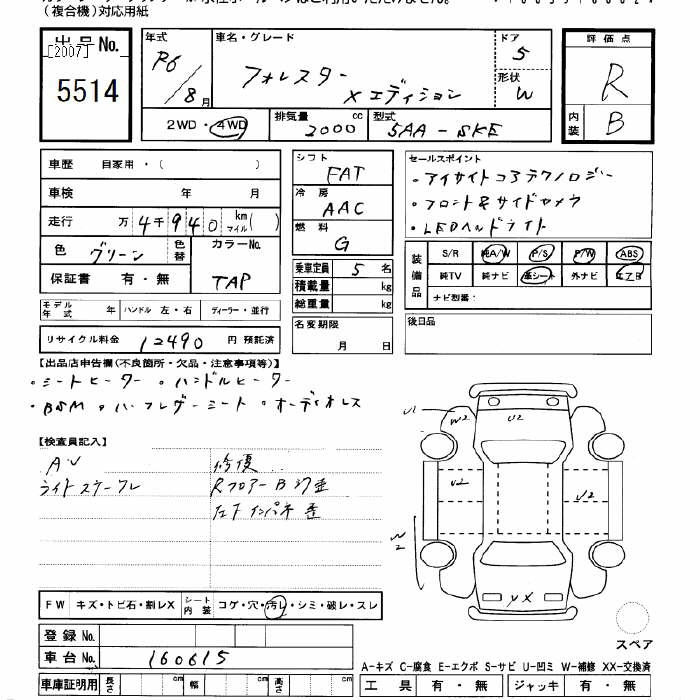 (複合機)対応用紙
出品No.
[2007]
5514
年式
R6/8月
車名・グレード
フォレスター
Xエディション
ドア
5
形状
W
評価点
R
内装
B
2WD・4WD
排気量
2000 cc
型式
5AA-SKE
車歴 自家用・( )
車検 年 月
走行 万4千940 km マイル( )
色 グリーン 色替
カラーNo.
TAP
保証書 有・無
モデル年式 年 ハンドル 左・右 ディーラー・並行
リサイクル料金 12490 円 預託済
シフト
FAT
冷房
AAC
燃料
G
乗車定員 5 名
積載量 kg
総重量 kg
名変期限
月 日
セールスポイント
・アイサイトコアテクノロジー
・フロント&サイドカメラ
・LEDヘッドライト
装備品
S/R 純A/W P/S P/W ABS
純TV 純ナビ 革シート 外ナビ エアB
ナビ型番:
後日品
【出品店申告欄(不良箇所・欠品・注意事項等)】
・シートヒーター ・ハンドルヒーター
・BSM ・ハーフレザーシート ・オーディオレス
【検査員記入】
AU
ライトスケーフレ
修復
RフロアーB凹歪
左下インパネ歪
U1
W2
U2
U2
U2
W2
YX
スペア
FW キズ・トビ石・割レX シート内装 コゲ・穴・汚レ・シミ・破レ・スレ
登録No.
車台No. 160615
車庫証明用 長さ cm 幅 cm 高さ cm
A-キズ C-腐食 E-エクボ S-サビ U-凹ミ W-補修 XX-交換済
工具 有・無 ジャッキ 有・無